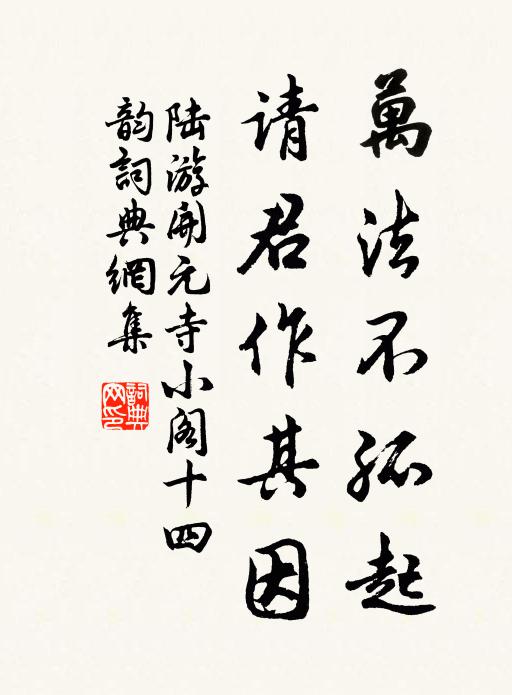 萬法不孤起
请君作其因
陆游開元寺小阁十四
韵詞典網集
詞典網印